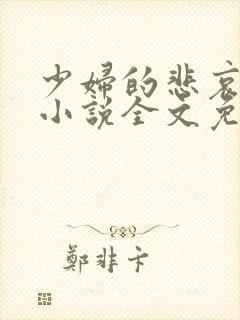 少婦的悲哀
小說全文免
鄭非卞